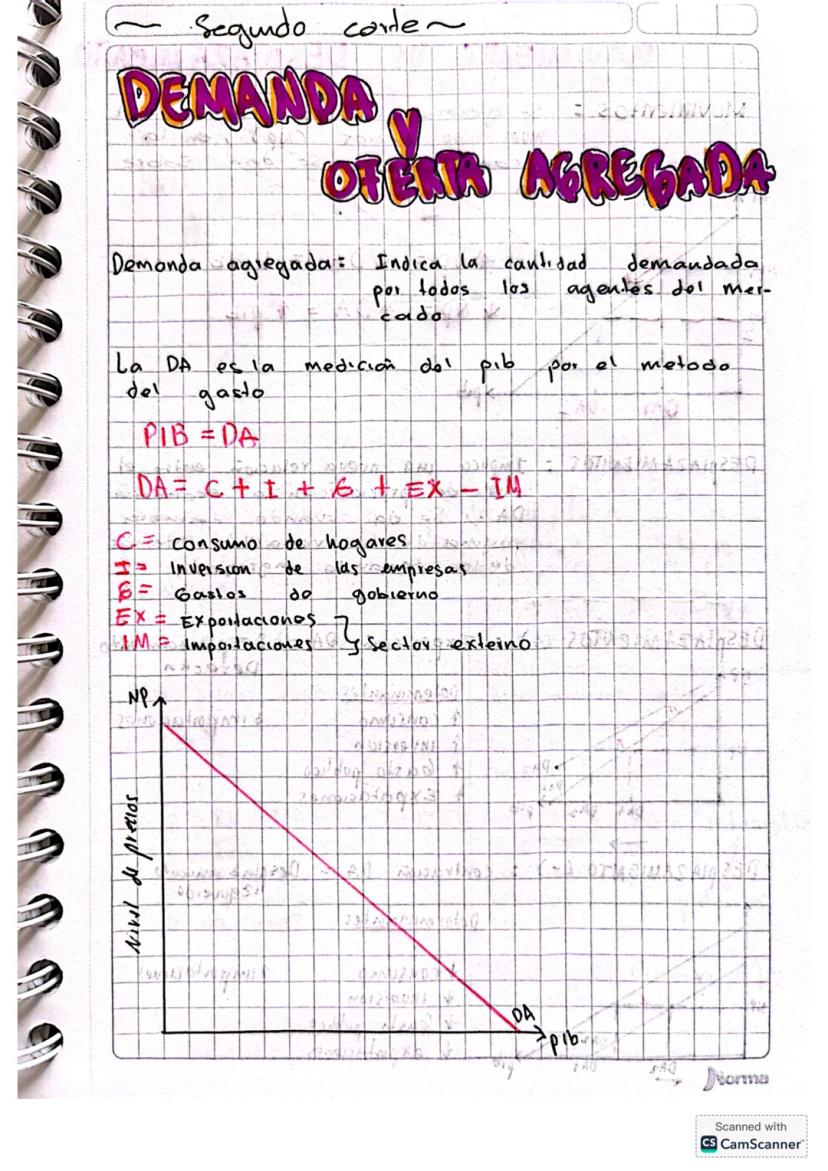 ~ Segundo corte ~
DEMANDA
Y
OFERTA AGREGADA
Demanda agregada: Indica la cantidad demandada
por todos los agentes del mer-
cado
La DA es la medición del pib por el metodo
del gasto
PIB = DA
DA = C + I + G + EX - IM
C = consumo de hogares
I = Inversion de las empresas
G = Gastos do gobierno
EX = Exportaciones
IM = Importaciones } Sector externo
NP
Nivel de precios
DA
pib
Norma
Scanned with
CS CamScanner